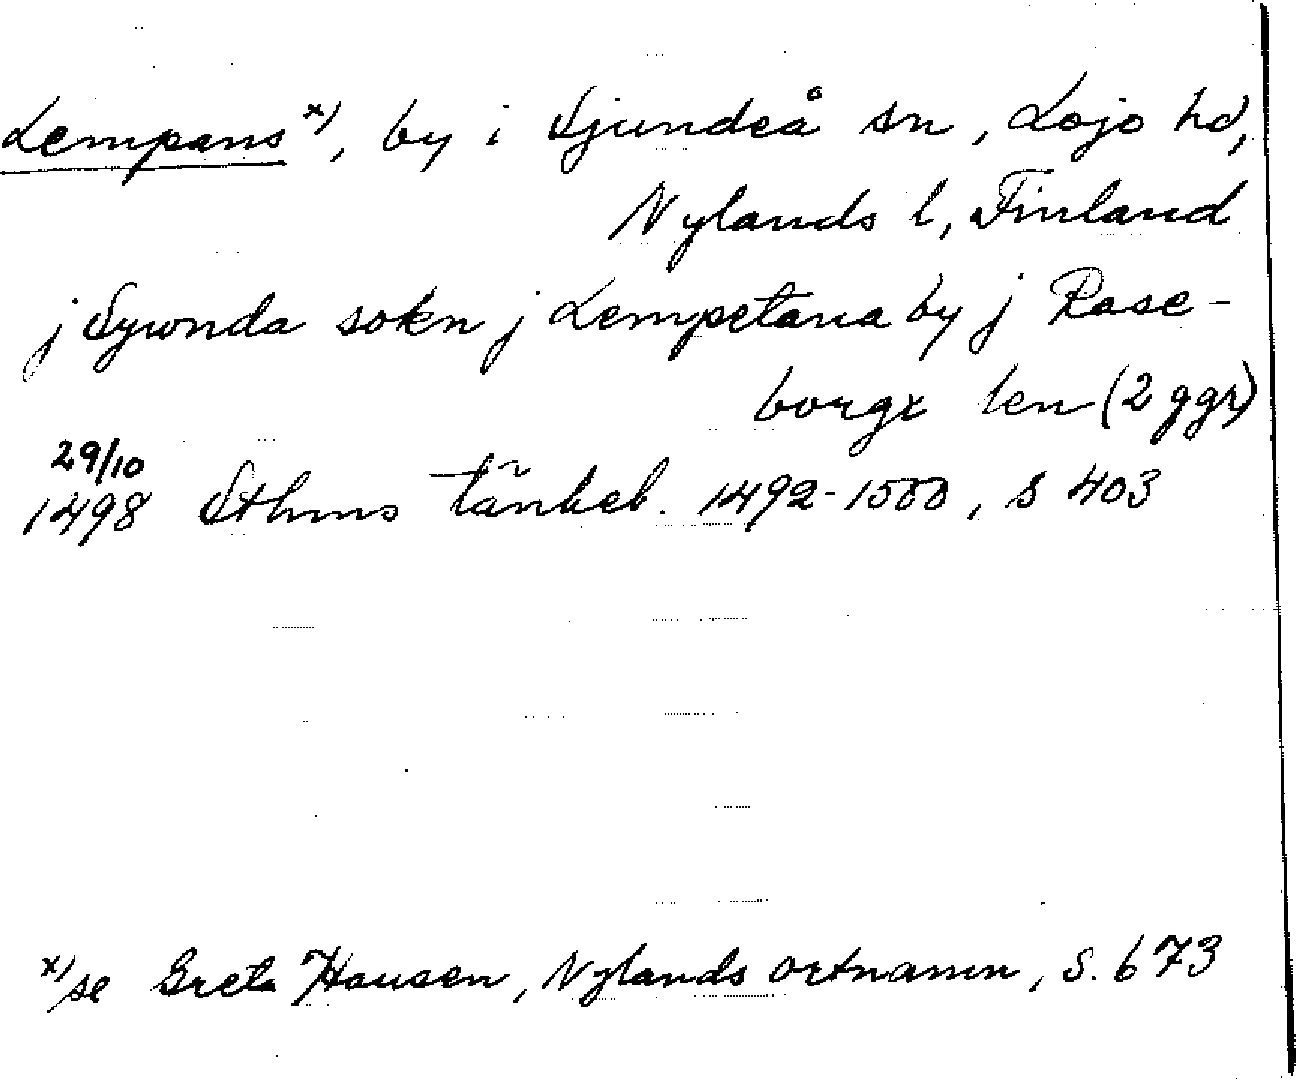 Lempans x), by i Sjundeå sn, Lojo hd,
Nylands l, Finland
j Sywnda sokn j Lempetana by j Rase-
borgx len (2 ggr)
29/10
1498 Sthms tänkeb. 1492-1500, s 403
x) se Greta Hausen, Nylands ortnamn, s. 673